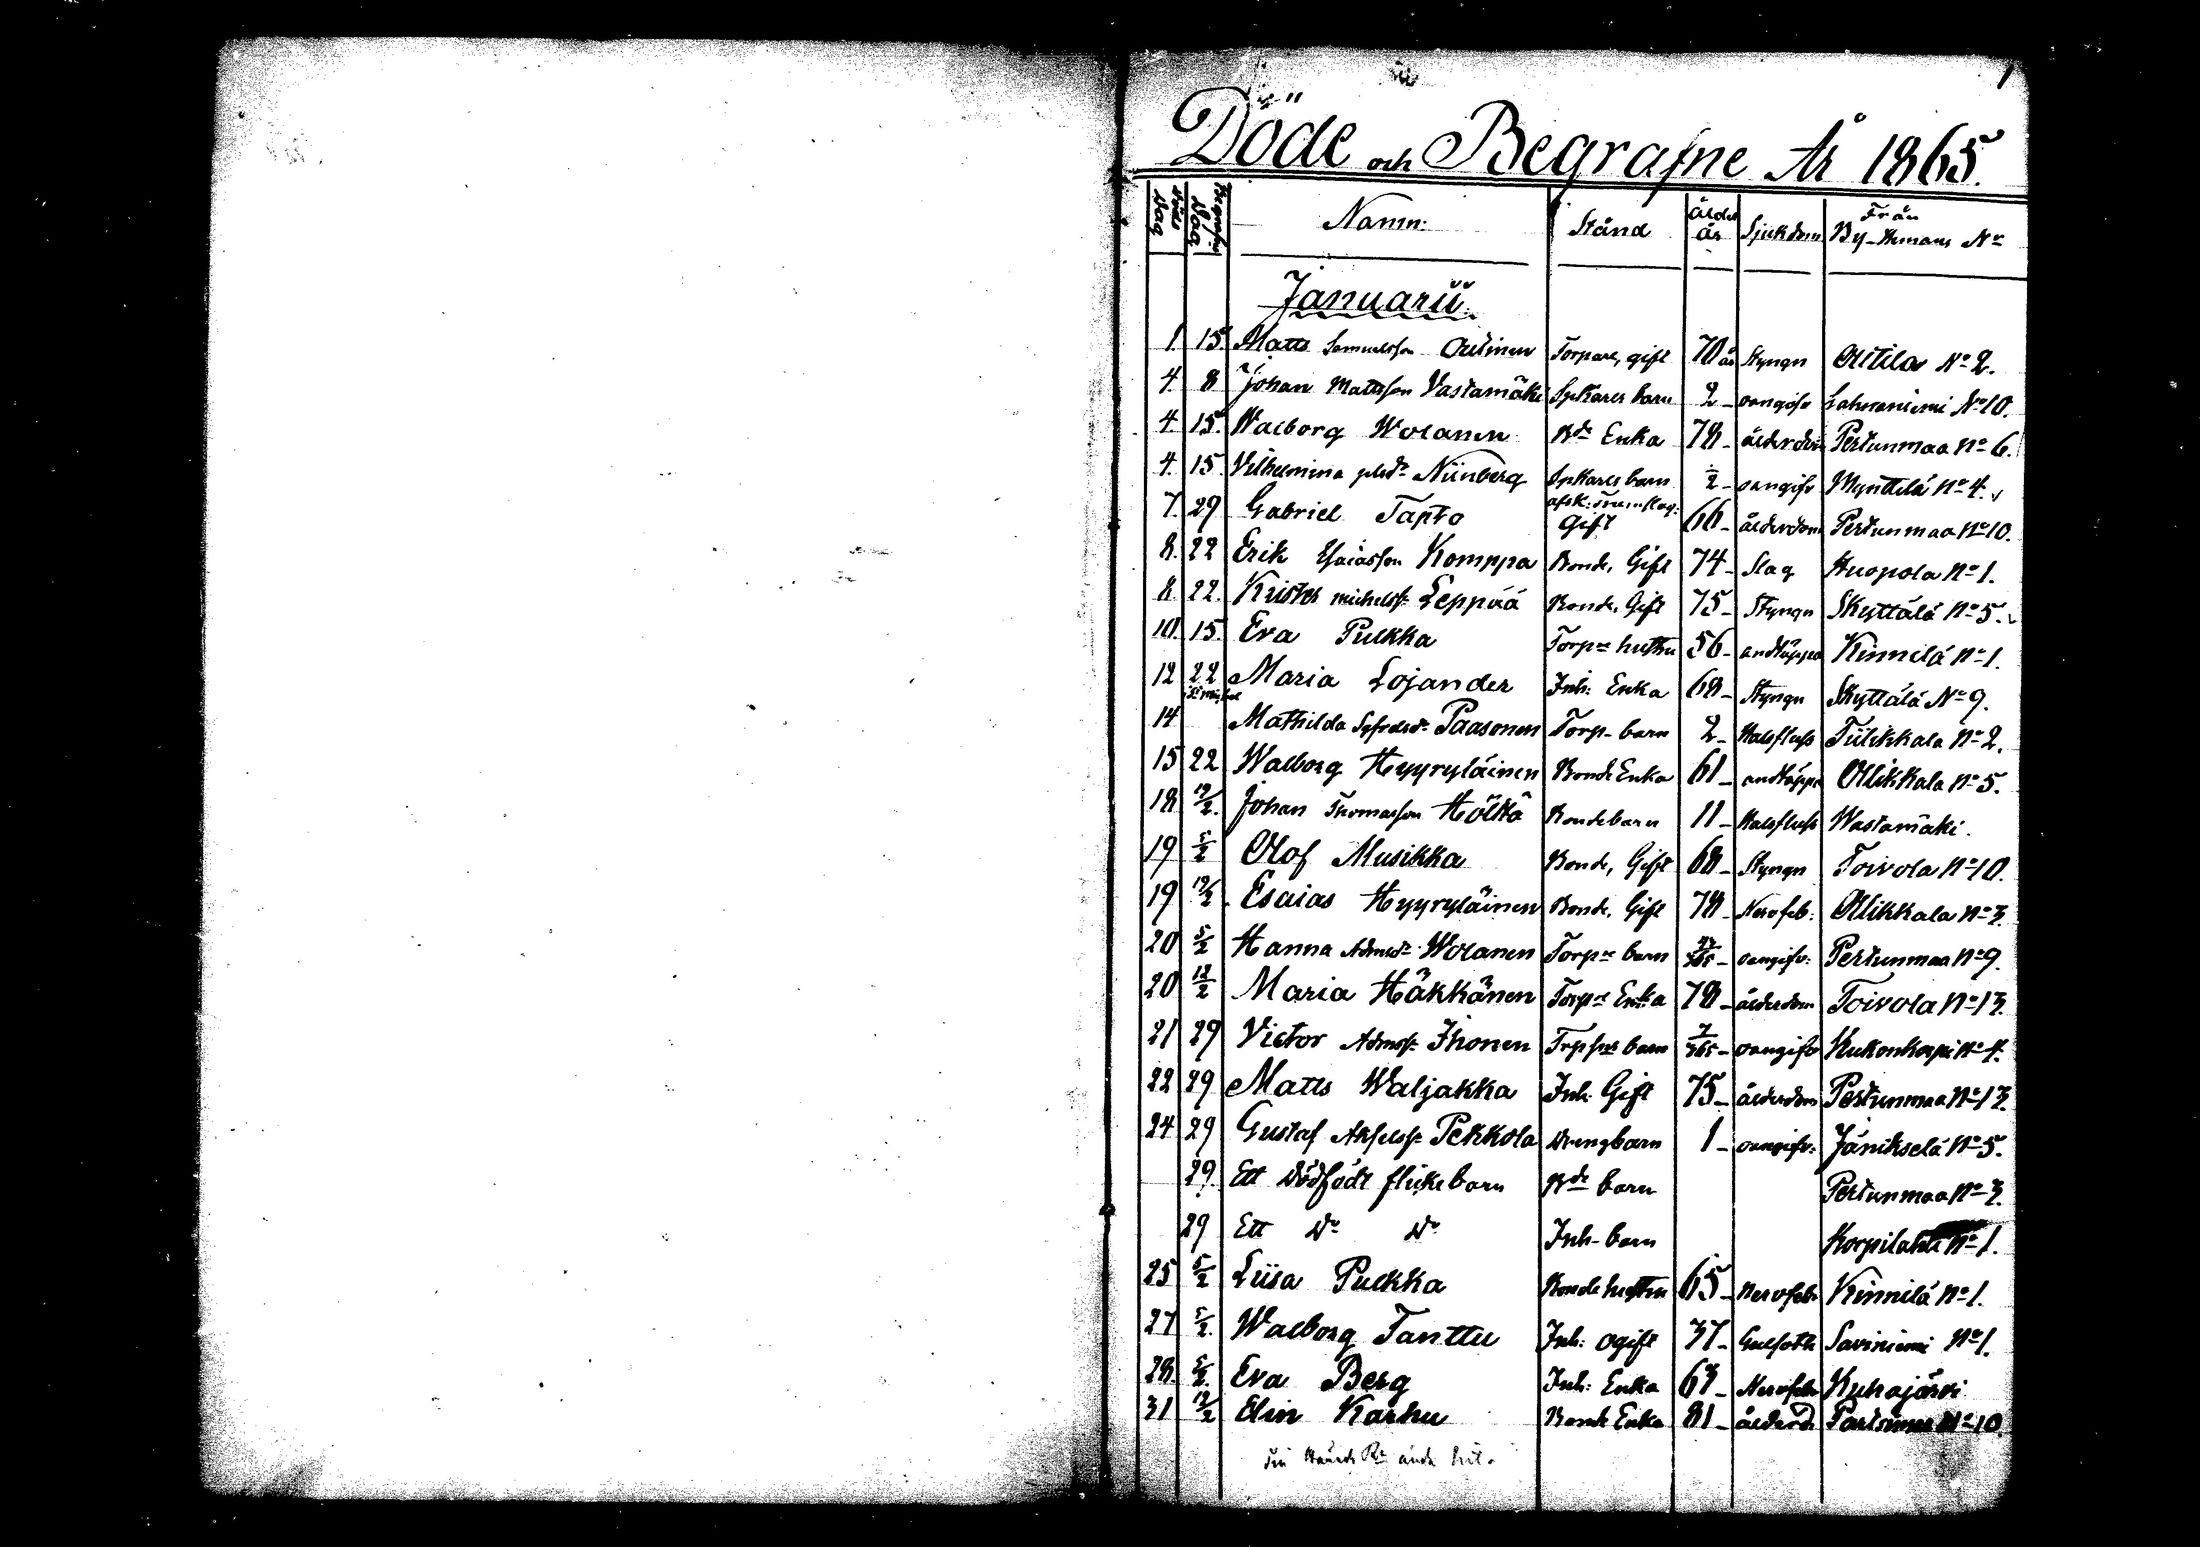 1
Döde och Begrafne År 1865.
Döds Dag Begrafn: Dag Namn: Stånd ålder år Sjukdom Från By-Hemans No
Januarii
1. 15. Matts Samuelsson Outinen Torpare, gift 70 år Styngn Outila No 2.
4. 8 Johan Mattsson Vastamäki Spkares barn 2 - oangifv Lahnaniemi No 10.
4. 15. Walborg Wolanen Bde Enka 78 - ålderdom Pertunmaa No 6.
4. 15. Vilhelmina Niinberg Spkares barn 1/2 - oangifv Mynttilä No 4.
7. 29 Gabriel Tapto afsk: Gift 66 - ålderdom Pertunmaa No 10.
8. 22 Erik Esaiasson Komppa Bonde, Gift 74 - Slag Huopola No 1.
8. 22. Krister Michelss: Leppää Bonde, Gift 75 - Styngn Skyttälä No 5.
10. 15. Eva Pulkka Torpre hustru 56 - andtäppa Kinnilä No 1.
12 22 Maria Lojander Inh: Enka 68 - Styngn Skyttälä No 9.
14 Mathilda Paasonen Torp- barn 2 - Halsfluss Tulikkala No 2.
15 22 Walborg Hyyryläinen Bonde Enka 61 - andtäppa Ollikkala No 5.
18 12/2. Johan Thomasson Hölttä Bondebarn 11 - Halsfluss Wastamäki.
19 5/2 Olof Musikka Bonde, Gift 68 - Styngn Toivola No 10.
19 12/2. Esaias Hyyryläinen Bonde, Gift 78 - Nervfeb: Ollikkala No 3.
20 5/2 Hanna Admsdr Wolanen Torpre barn /365 - oangifv: Pertunmaa No 9.
20 12/2 Maria Häkkänen Torpre Enka 78 - ålderdom Toivola No 13.
21 29 Victor Admss: Ihonen barn 7/365 - oangifv Kukonkorpi No 4.
22 29 Matts Waljakka Inh. Gift 75 - ålderdom Pertunmaa No 13.
24 29 Gustaf Akselss: Pekkola Drengbarn 1 - oangifv: Jänikselä No 5.
29. Ett Dödfödt flickebarn Bde barn Pertunmaa No 3.
29 Ett Do Do Inh- barn Korpilahti No 1.
25 5/2 Liisa Pulkka Bonde hustru 65 - Nervfeb: Kinnilä No 1.
27 5/2. Walborg Tanttu Inh: ogift 37 - Gulsoth Saviniemi No 1.
28. 5/2. Eva Berg Inh: Enka 63 - Nervfeb Kuhajärvi
31 12/2 Elin Karhu Bonde Enka 81 - ålderd: No 10.